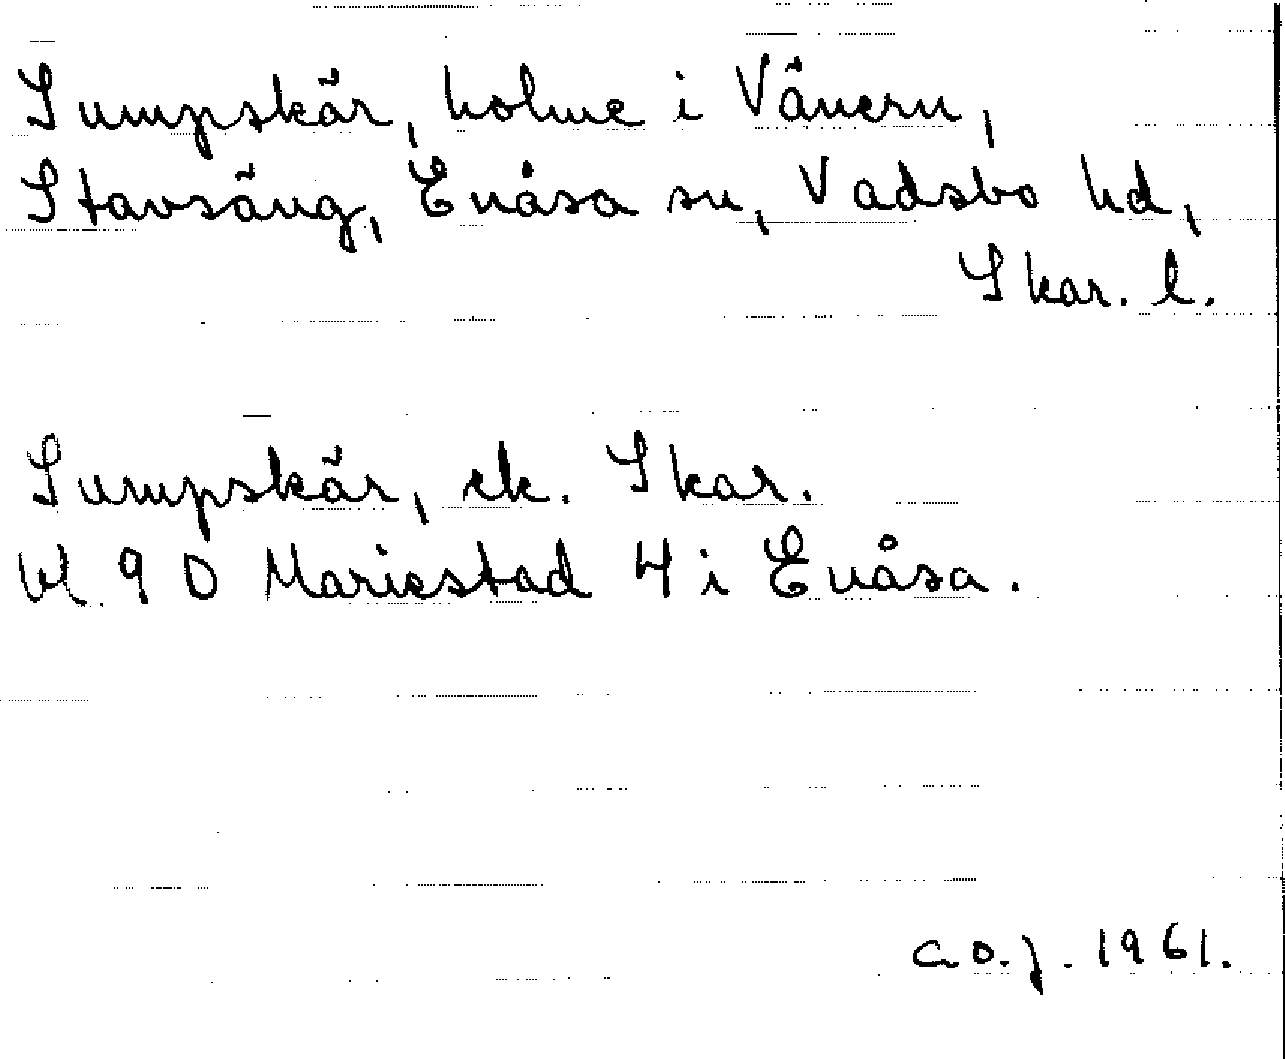 Sumpskär, holme i Vänern,
Stavsäng, Enåsa sn, Vadsbo hd,
Skar. l.
Sumpskär, ek. Skar.
bl. 9 D Mariestad 4 i Enåsa.
C.O.J. 1961.